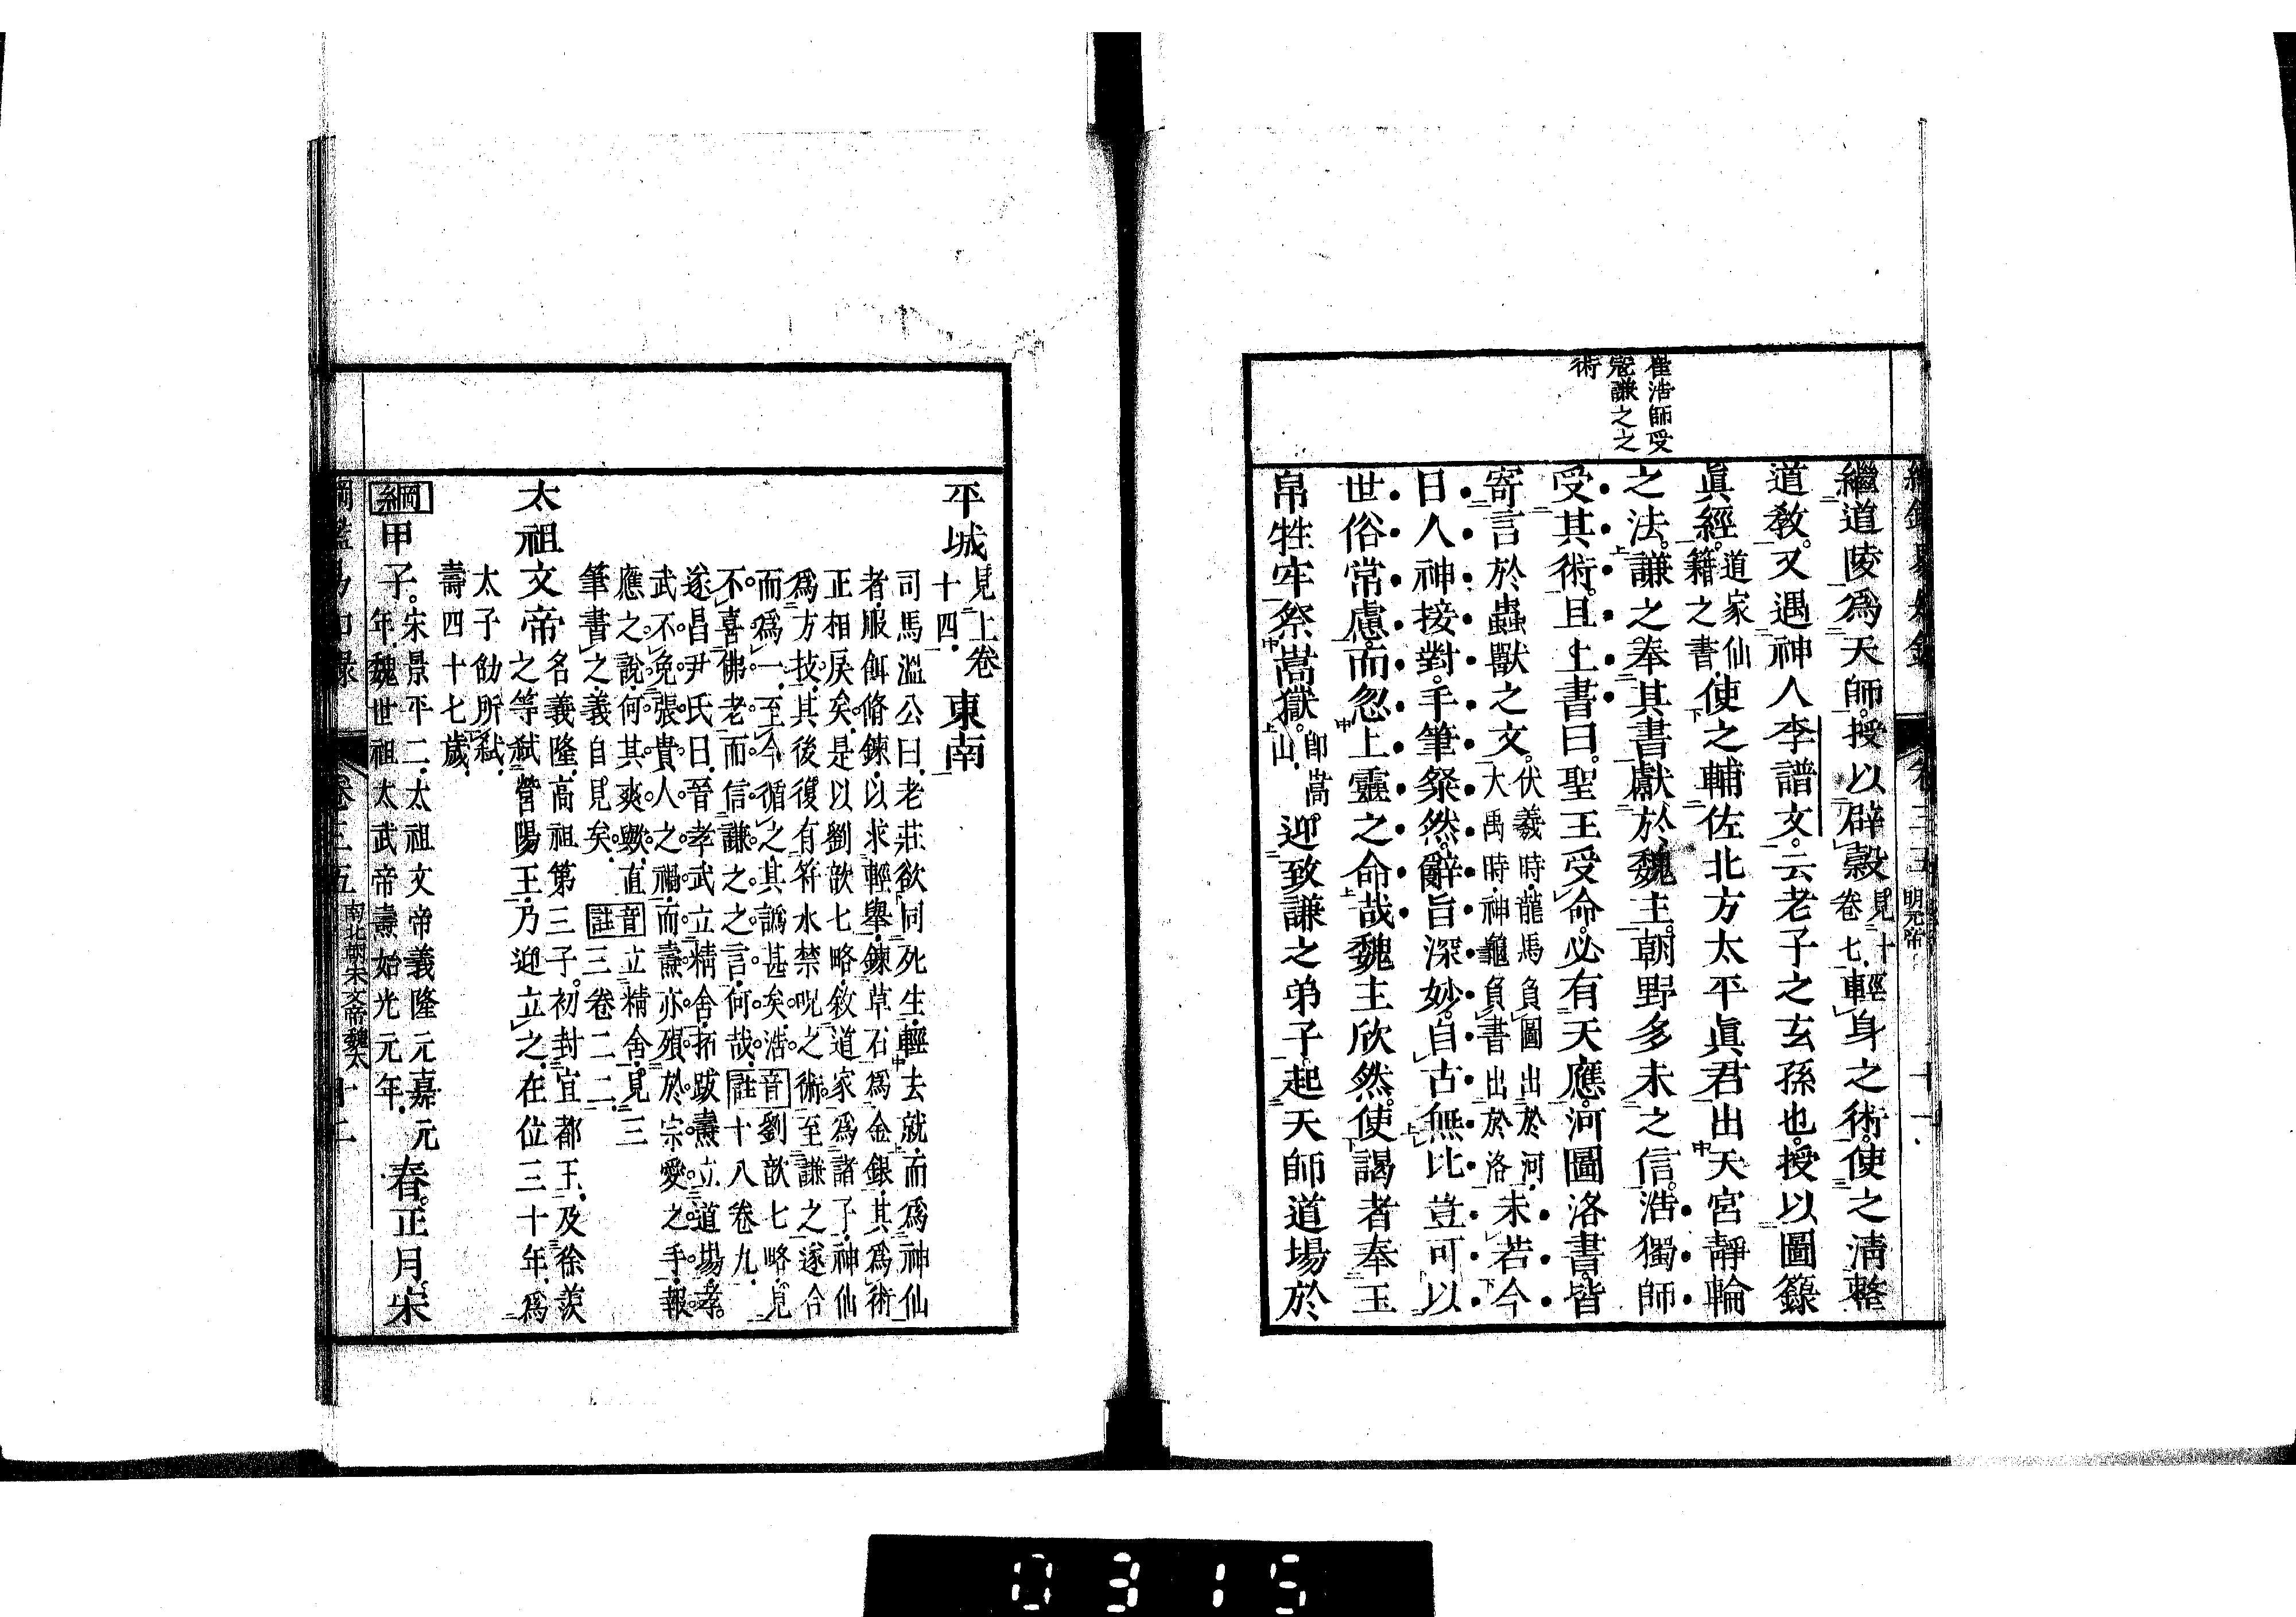 崔浩師受
寇謙之之
術
繼道陵爲天師授以辟穀見十卷七輕身之術使之淸整
道敎又遇神人李譜文云老子之玄孫也授以圖籙
眞經道家仙籍之書使之輔佐北方太平眞君出天宮靜輪
之法謙之奉其書獻於魏主朝野多未之信浩獨師
受其術且上書曰聖王受命必有天應河圖洛書皆
寄言於蟲獸之文伏羲時龍馬負圖出於河大禹時神龜負書出於洛未若今
日人神接對手筆粲然辭旨深妙自古無比豈可以
世俗常慮而忽上靈之命哉魏主欣然使謁者奉玉
帛牲牢祭嵩獄卽嵩山迎致謙之弟子起天師道場於
平城見上卷十四東南
司馬溫公曰老莊欲同死生輕去就而爲神仙
者服餌脩鍊以求輕舉鍊草石爲金銀其爲術
正相戾矣是以劉歆七略敘道家爲諸子神仙
爲方技其後復有符水禁呪之術至謙之遂合
而爲一至今循之其譌甚矣浩音註劉歆七略見十八卷九
不喜佛老而信謙之之言何哉
遂昌尹氏曰晉孝武立精舍拓跋燾立道場孝
武不免張貴人之禍而燾亦殞於宗愛之手報
應之說何其爽歟直音註立精舍見三三卷二二
筆書之義自見矣
太祖文帝名義隆高祖第三子初封宜都王及徐羨
之等弑營陽王乃迎立之在位三十年爲
太子劭所弑
壽四十七歲
綱甲子宋景平二太祖文帝義隆元嘉元年魏世祖太武帝燾始光元年春正月宋
卷三五 南北朝宋文帝魏太 十二